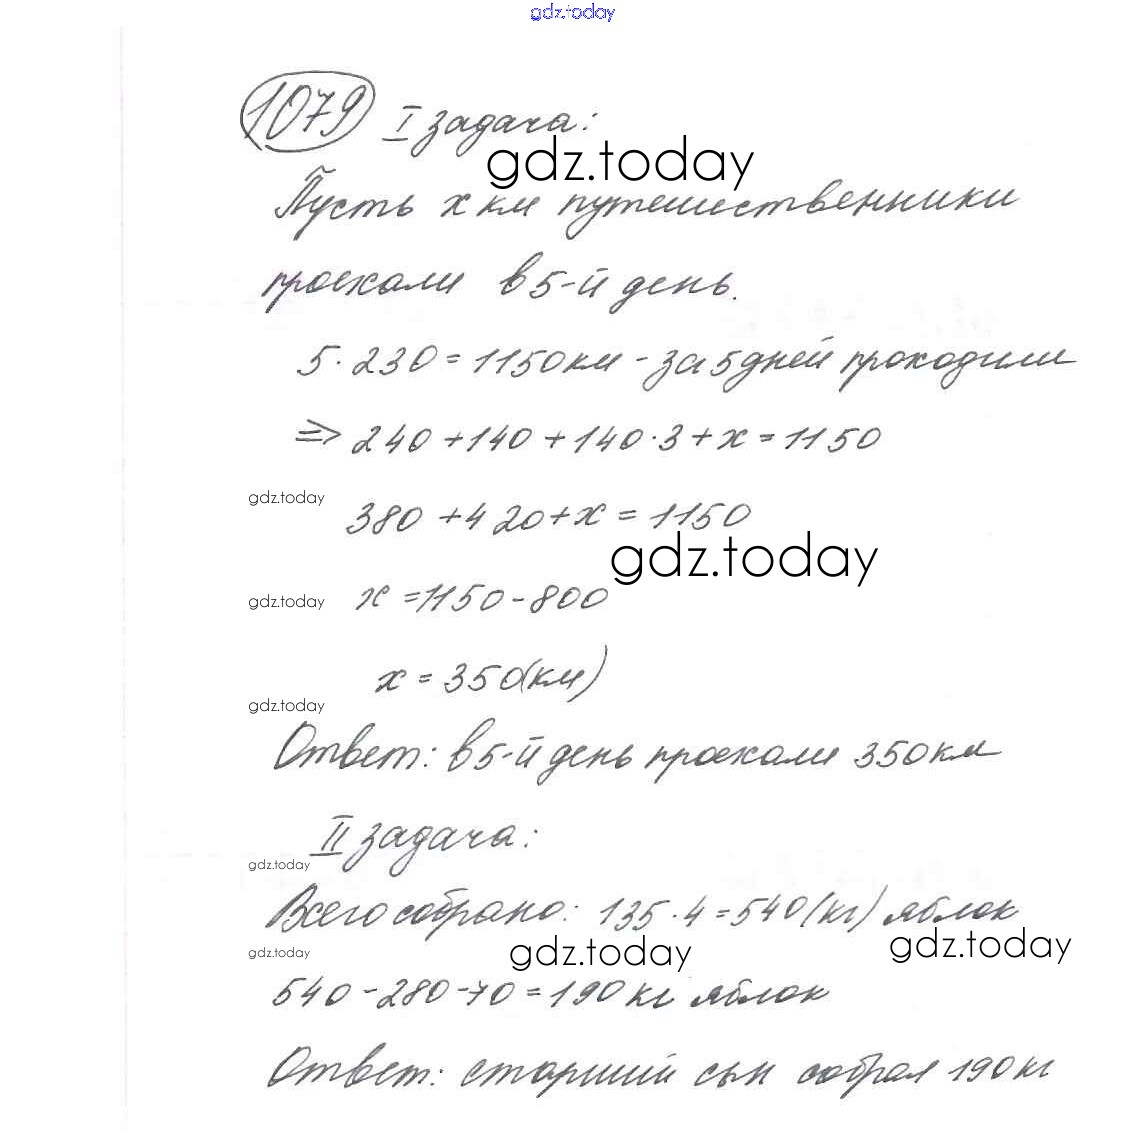 gdz.today
1079 I задача:
gdz.today
Пусть x км путешественники
проехали в 5-й день.
5·230=1150км - за 5 дней проходили
=> 240+140+140·3+x=1150
gdz.today
380+420+x=1150
gdz.today
gdz.today x=1150-800
x=350(км)
gdz.today
Ответ: в 5-й день проехали 350км
II задача:
gdz.today
Всего собрано: 135·4=540(кг) яблок
gdz.today gdz.today gdz.today
540-280-70=190 кг яблок
Ответ: старший сын собрал 190кг